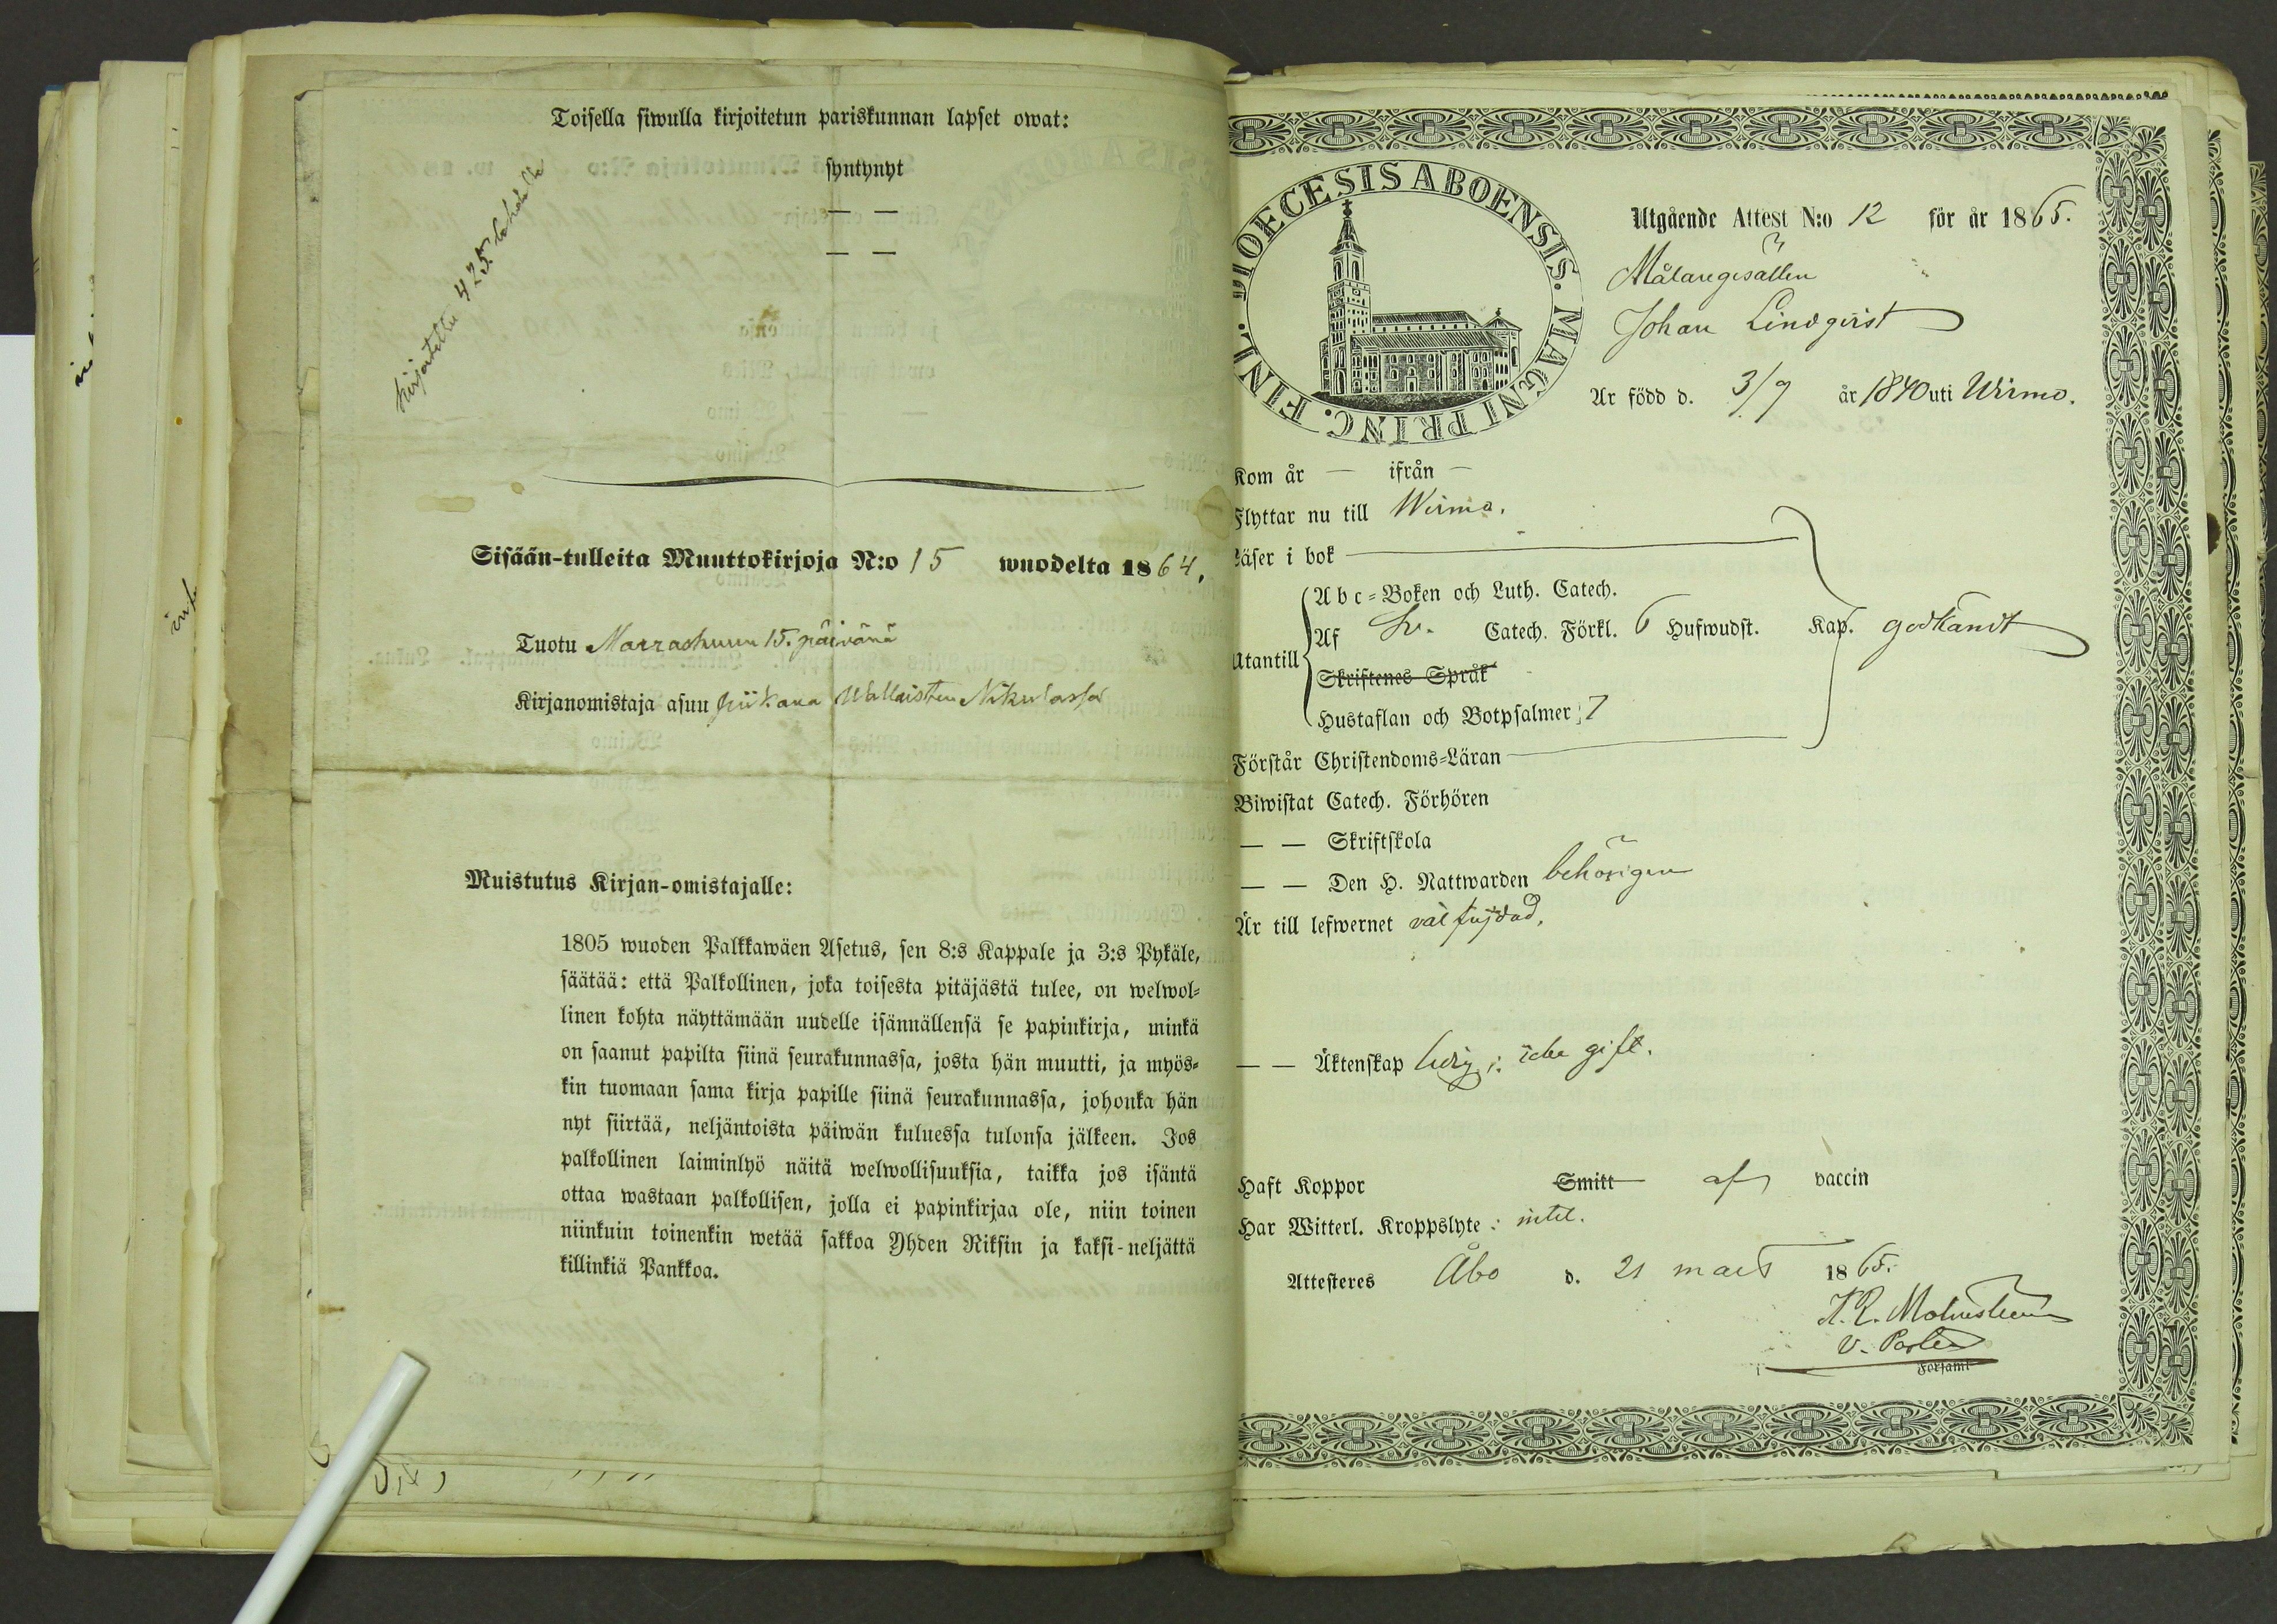 Toisella siwulla kirjoitetun pariskunnan lapset owat:
syntynyt
— —
— —
kirjoitettu 425 lehdelle
Sisään-tulleita Muuttokirjoja N:o 15 wuodelta 1864.
Tuotu Marraskuun 15. päivänä
Kirjanomistaja asuu piikana Wallaisten Nikulassa
Muistutus Kirjan-omistajalle:
1805 wuoden Palkkawäen Asetus, sen 8:s Kappale ja 3:s Pykäle,
säätää: että Palkollinen, joka toisesta pitäjästä tulee, on welwol-
linen kohta näyttämään uudelle isännällensä se papinkirja, minkä
on saanut papilta siinä seurakunnassa, josta hän muutti, ja myös-
kin tuomaan sama kirja papille siinä seurakunnassa, johonka hän
nyt siirtää, neljäntoista päiwän kuluessa tulonsa jälkeen. Jos
palkollinen laiminlyö näitä welwollisuuksia, taikka jos isäntä
ottaa wastaan palkollisen, jolla ei papinkirjaa ole, niin toinen
niinkuin toinenkin wetää sakkoa Yhden Riksin ja kaksi-neljättä
killinkiä Pankkoa.
DIOECESIS ABOENSIS. MAGNI PRINC. FINL.
Utgående Attest N:o 12 för år 1865.
Målaregesällen
Johan Lindqvist
Är född d. 3/9 år 1840 uti Wirmo.
Kom år — ifrån —
Flyttar nu till Wirmo.
Läser i bok
Utantill
A b c-Boken och Luth. Catech.
Af Sv. Catech. Förkl. 6 Hufwudst. Kap. godkändt
Skriftenes Språk
Hustaflan och Botpsalmer 7
Förstår Christendoms-Läran
Biwistat Catech. Förhören
— — Skriftskola
— — Den H. Nattwarden behörigen
Är till lefwernet väl frejdad.
— — Äktenskap ledig; icke gift.
Haft Koppor Smitt af vaccin
Har Witterl. Kroppslyte: intet.
Attesteres Åbo d. 21 mars 1865.
V. Pastor
i Församl